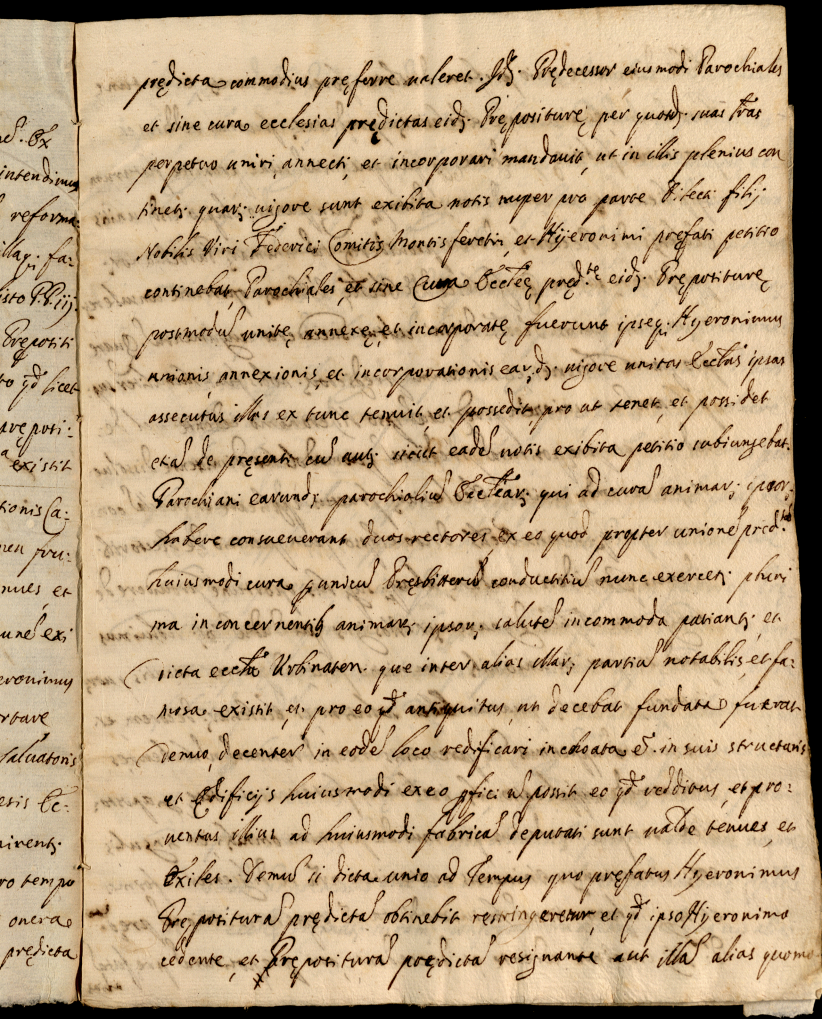 ne. Ex
intendimus
reforma
illaq; fa-
isto P.P. iij.
Prepositi
to qd licet
prepoti:
a existit
tionis Ca:
men fru:
nues et
une exi
eronimus
rtave
Saluatoris
esis Ec:
uirent;
ro tempo
onera
predicta
pręDicta commodius pręferre ualeret. Id;. PręDecessor eiusmodi Parochiales
et sine cura ecclesias prędictas eid; Prępositurę per quasd; suas l'ras
perpetuo uniri annecti, et incorporari mandauit, ut in illis plenius con
tinet; quar; uigore sunt exibita nobis nuper pro parte Dilecti filij
Nobilis Viri Federici Comitis Montisferetri, et Hyeronimi pręfati petitio
continebat Parochiales, et sine Cura Ecc'lię pręd.te eid; Prępositurę
postmodu' unitę annexę, et incorporatę fuerunt ipseq; Hyeronimus
unionis annexionis, et incorporationis ear;d; uigore unitas Eccl'as ipsas
assecutus illas ex tunc tenuit, et possedit, pro ut tenet, et possidet
etia' de pręsenti cu' aut; sicut eade' nobis exibita petitio subiungebat.
Parochiani earund; parochialiu' Eccl'ear; qui ad cura' animar; ipsor;
habere consueuerant duos rectores, ex eo quod propter unione' pred.tam
huiusmodi cura p unicu' Pręsbitteru' conductitiu' nunc exercet; pluri
ma in concernentib; animar; ipsor; salute' incommoda patiant; et
dicta eccl'ia Urbinaten. que inter alias illar; partiu' notabilis, et fa-
mosa existit, et pro eo qd antiquitus, ut decebat fundata fuerat
denuo, decenter in eode' loco redificari inchoata e'. in suis structuris
et Edificijs huiusmodi ex eo pfici n' possit eo qd redditus, et pro:
uentus illius ad huiusmodi fabrica' deputati sunt ualde tenues, et
Exiles. Demu' si dicta unio ad Tempus quo pręfatus Hyeronimus
Prępositura' prędicta' obtinebit restringeretur, et qd ipso Hyeronimo
cedente, et Prępositura' prędicta' resignante aut illa' alias quomo